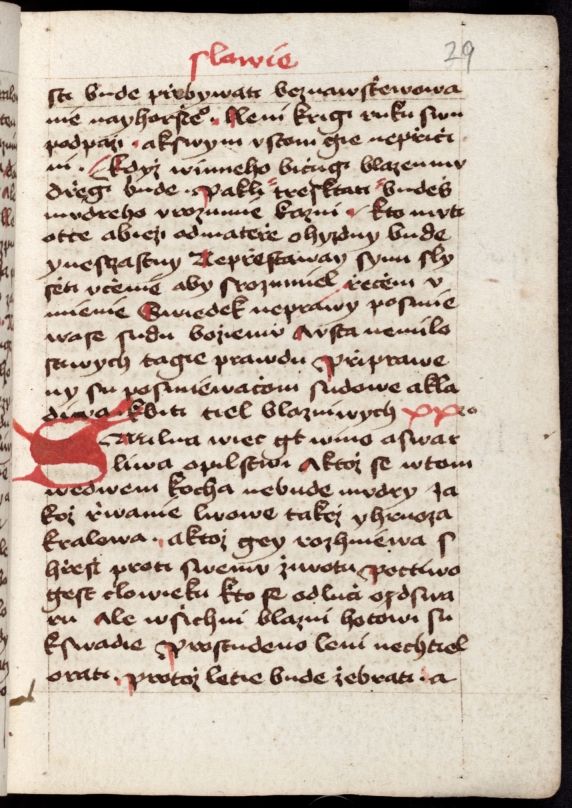 slowie
29
sti bude přebywati beznawštewowa
nie nayhoršieº. Leni krigi ruku swu
podpaži. akswym ustom gie nepřiči
ni. Když winneho bičugi blazen mu
dřegi bude. Pakli treſktati budeš
mudreho urozumie kazni. kto muti
otce abieži odmateře ohyzdny bude
yneſtiaſtny Nepřeſtaway synu sly
šeti učenie aby srozumiel řečem u
mienie Swiedek neprawy poſmie
wase sudu božiemu Auſta nemilo
stiwych tagie prawdu Připrawe
ny su poſmiewačom sudowe akla
diwa kbiti tiel blazniwych xxº
Chilna wiec gt wino aſwar
liwa opilſtwi Aktož se wtom
wedwem kocha nebude mudry Ja
kož řwanie lwowe takež yhruoza
kralowa. aktož gey rozhniewa s
hřeší proti swemu žiwotu Poctiwo
geſt člowieku kto se odlučí odſwa
ru Ale wſichni blazni hotowi su
kſwadie Proſtudeno leni nechtiel
orati. protož letie bude žebrati. a